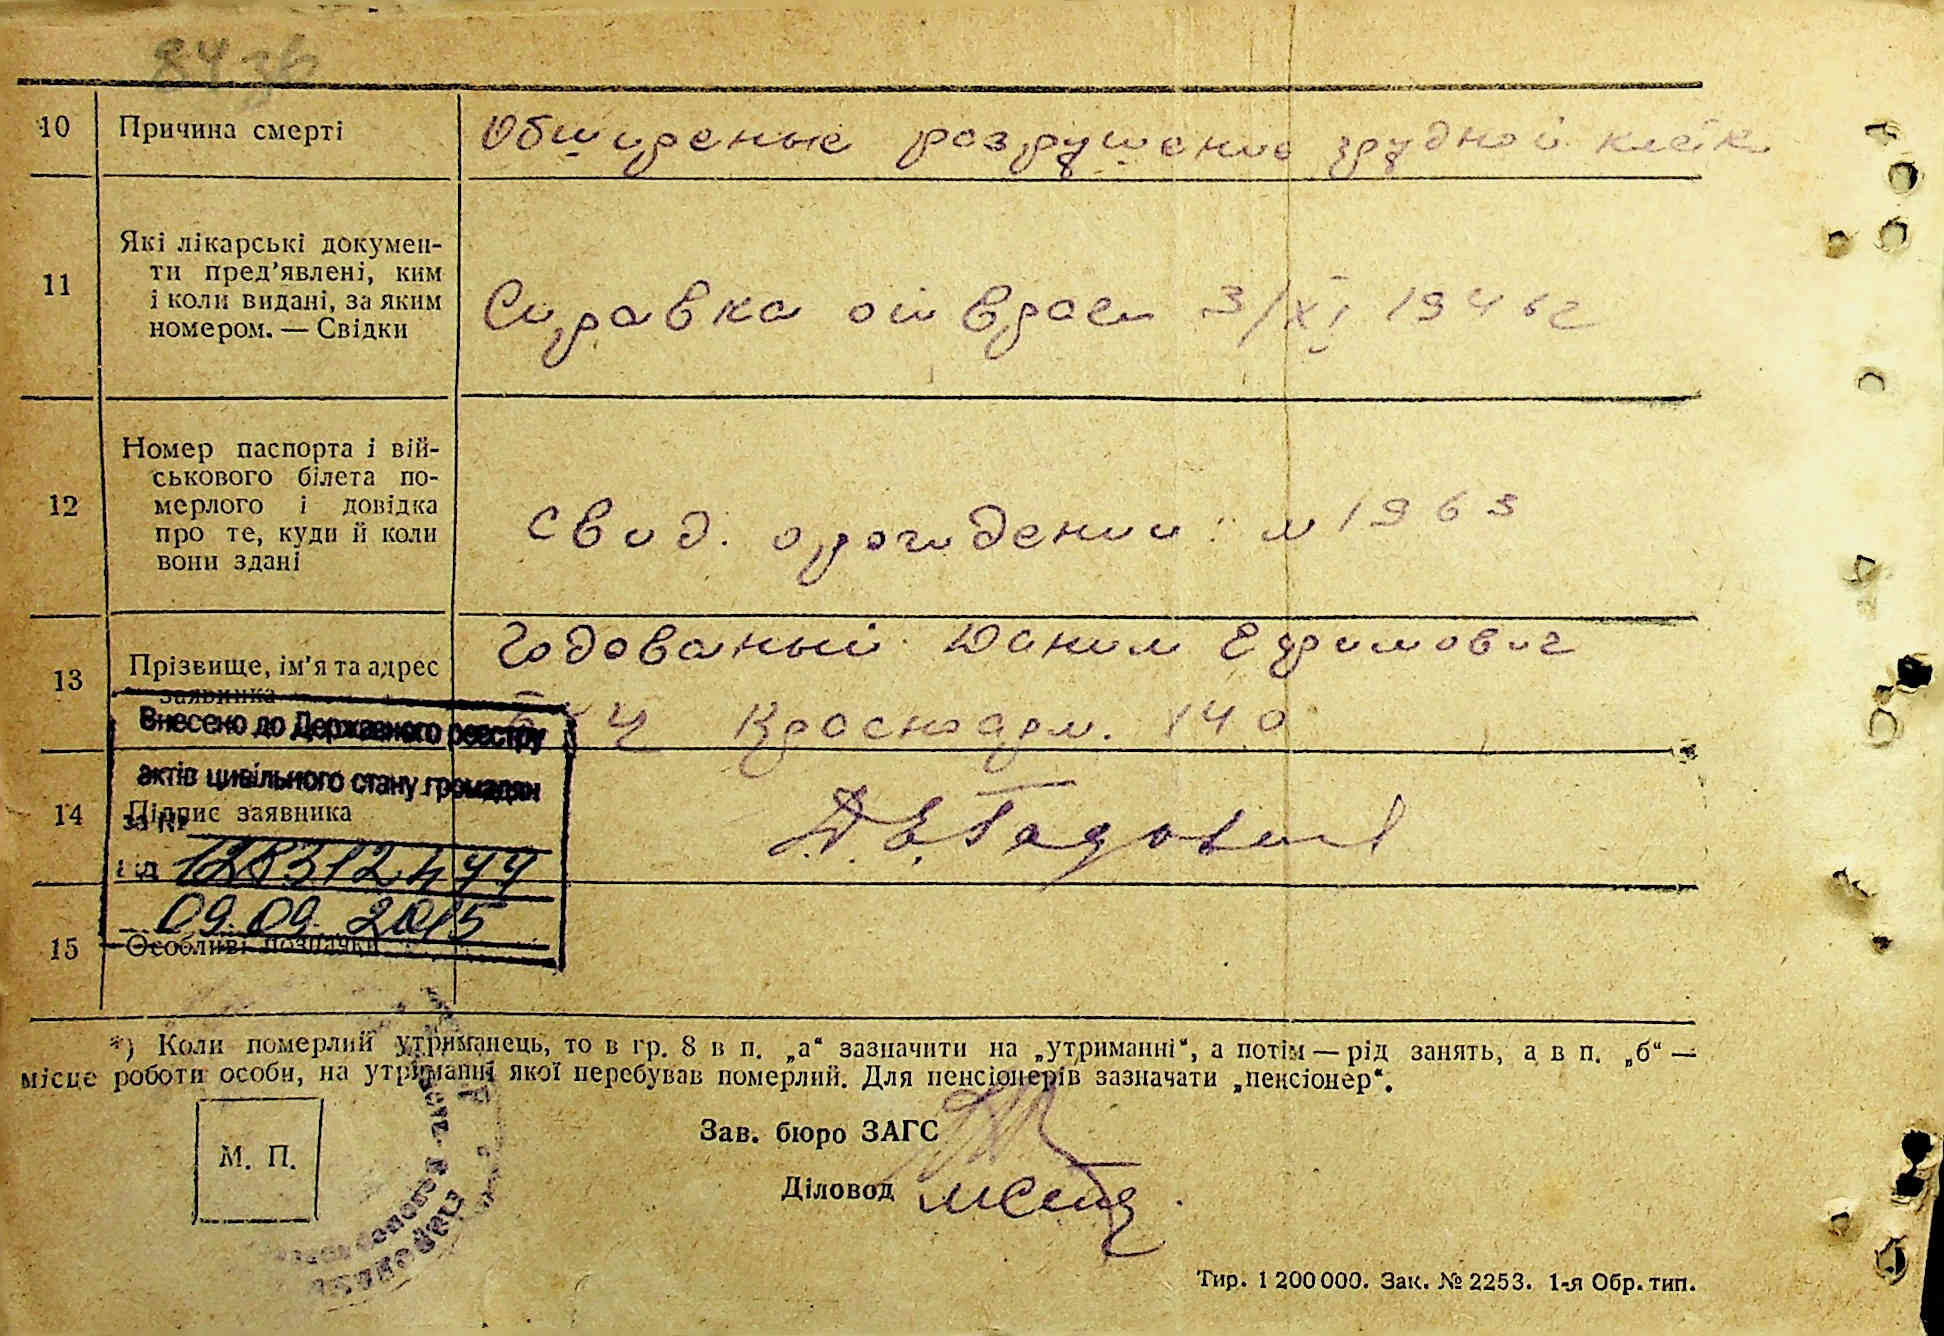 10
Причина смерті
Обширеные розрушение грудной клетк
11
Які лікарські докумен-
ти пред'явлені, ким
і коли видані, за яким
номером. — Свідки
Справка от врач 3/XI 1946г
12
Номер паспорта і вій-
ськового білета по-
мерлого і довідка
про те, куди й коли
вони здані
Свид. о рождении: №1963
13
Прізвище, ім'я та адрес
заявника
Годованый Данил Ефимович
Красноарм. 140
Внесено до Державного реєстру
актів цивільного стану громадян
14
Підпис заявника
за №
Д.Е.
від 128312499
09.09.2015
15
Особливі позначки
*) Коли померлий утриманець, то в гр. 8 в п. „а“ зазначити на „утриманні“, а потім — рід занять, а в п. „б“ —
місце роботи особи, на утриманні якої перебував померлий. Для пенсіонерів зазначати „пенсіонер“.
Зав. бюро ЗАГС
М. П.
Діловод
Тир. 1 200 000. Зак. № 2253. 1-я Обр. тип.